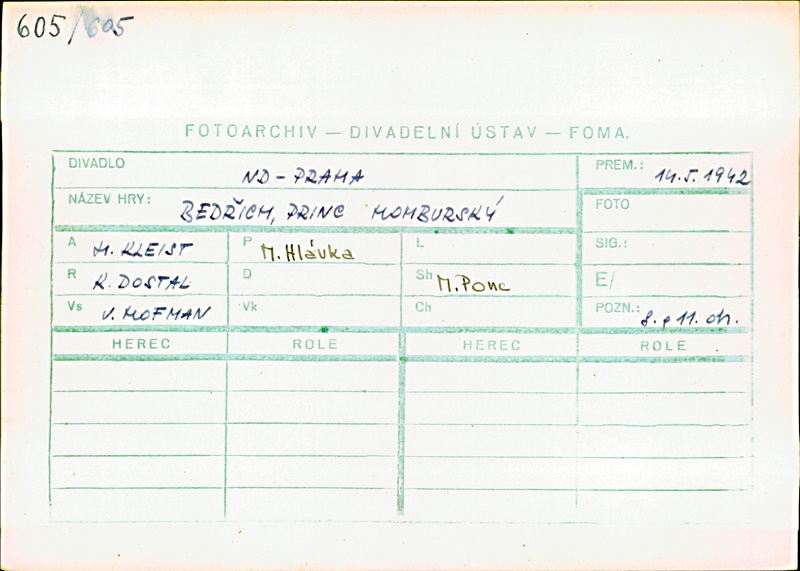 605/605
FOTOARCHIV — DIVADELNÍ ÚSTAV — FOMA.
DIVADLO ND - PRAHA PREM.: 14.5.1942
NÁZEV HRY: BEDŘICH, PRINC HOMBURSKÝ FOTO
A H. KLEIST P M. Hlávka L SIG.:
R K. DOSTAL D Sh M. Ponc E/
Vs V. HOFMAN Vk Ch POZN.: 8. p 11. ob.
HEREC ROLE HEREC ROLE